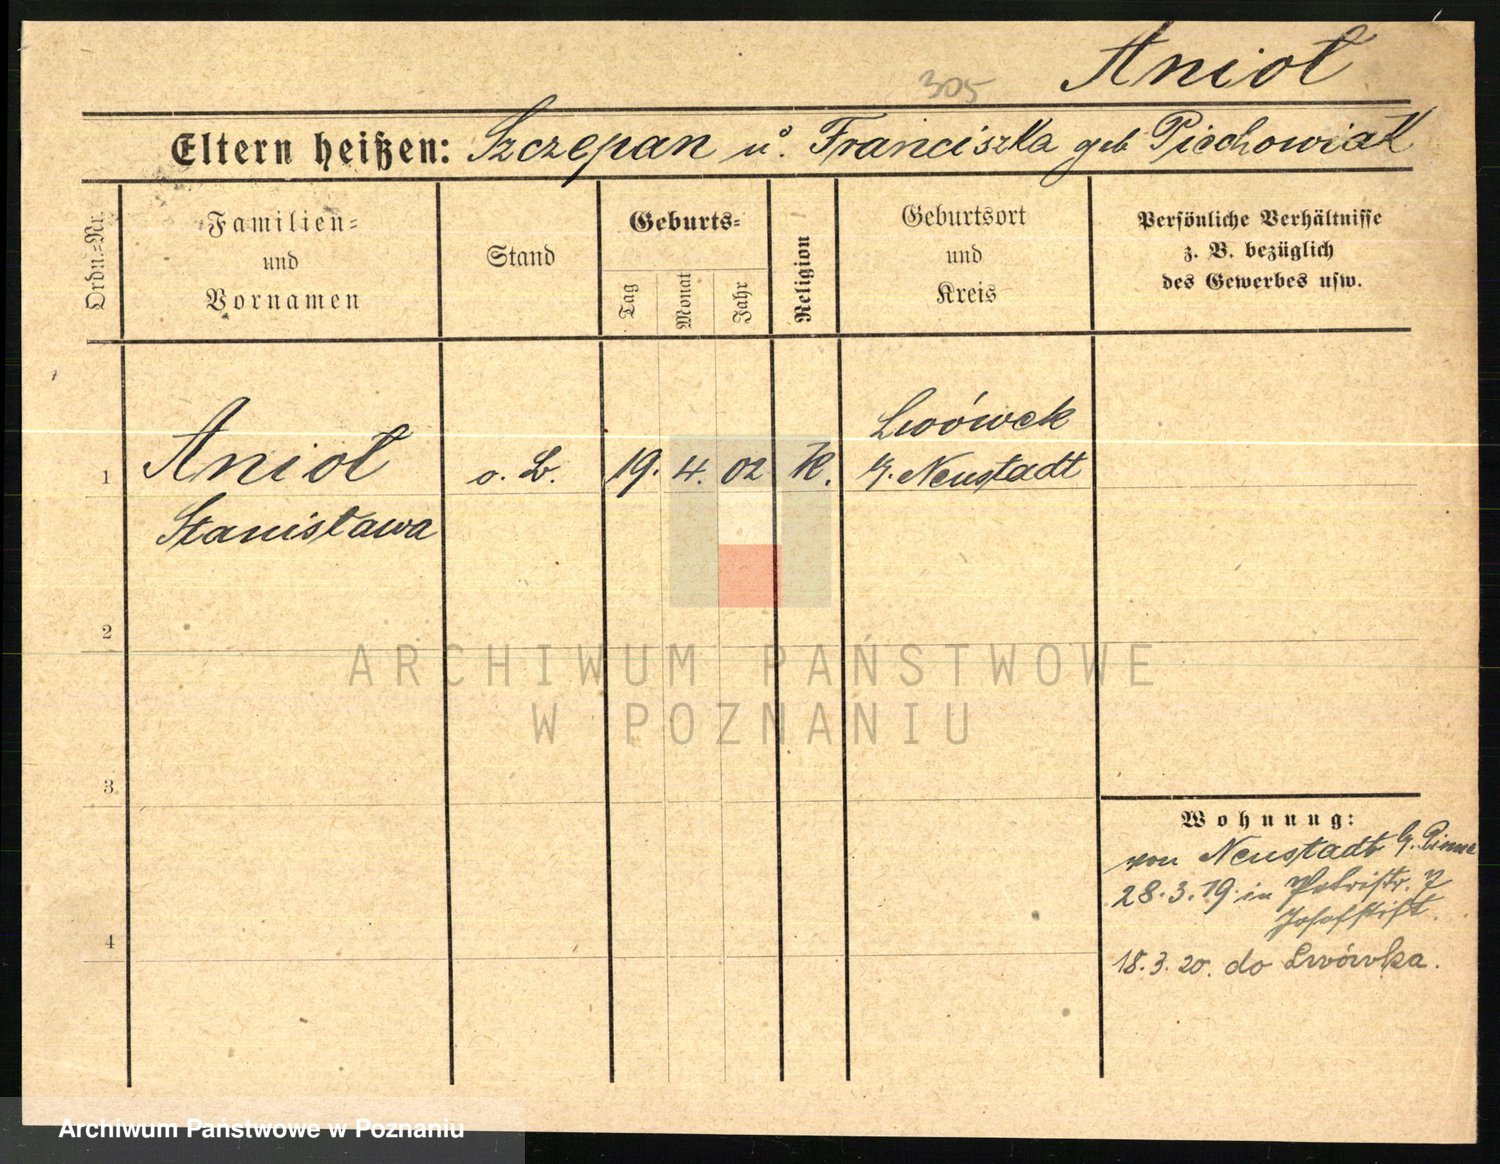 305
Anioł
Eltern heißen: Szczepan u. Franciszka geb Piechowiak
Ordn.-Nr.
Familien-
und
Vornamen
Stand
Geburts-
Tag
Monat
Jahr
Religion
Geburtsort
und
Kreis
Persönliche Verhältnisse
z. B. bezüglich
des Gewerbes usw.
1
Anioł
Stanisława
o. B.
19. 4. 02
K.
Lwówek
K. Neustadt
2
ARCHIWUM PAŃSTWOWE
W POZNANIU
3
Wohnung:
von Neustadt b. Pinne
28.3.19 in Petristr. 7
Josefstift.
4
18.3.20. do Lwówka.
Archiwum Państwowe w Poznaniu